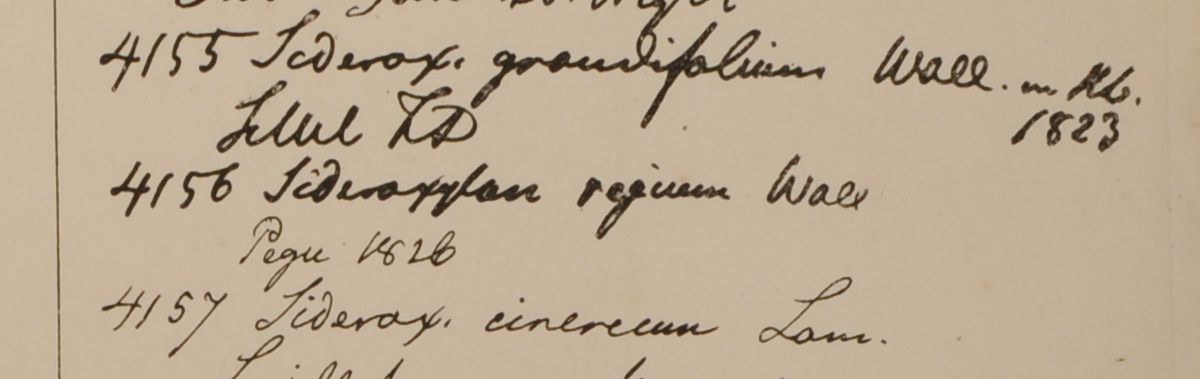 4155 Siderox. grandifolium Wall. in Hb.
1823
4156 Sideroxylon regium Wall
Pegu 1826
4157 Siderox. cinereum Lam.